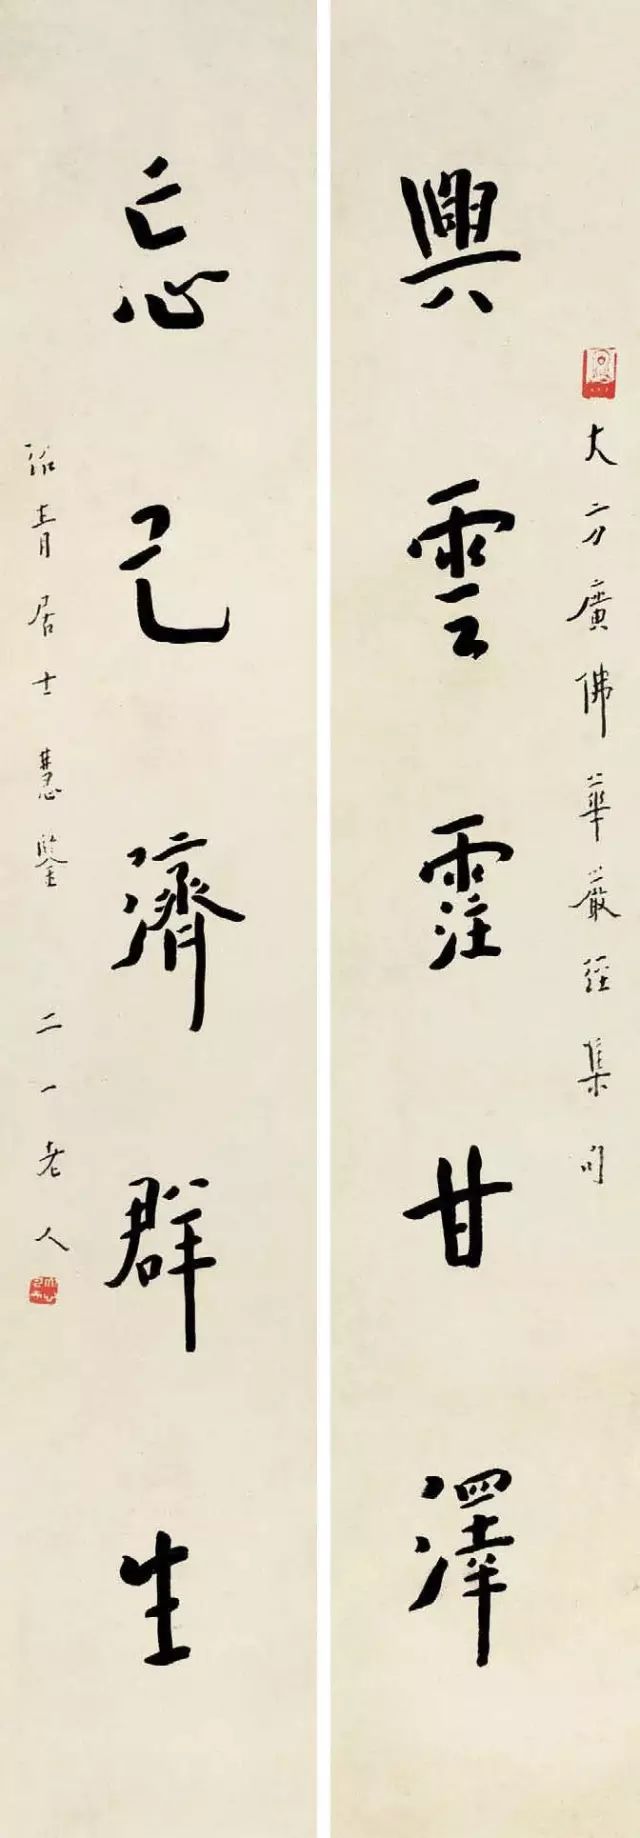 大方廣佛華嚴經集句
興雲霔甘澤
忘己濟群生
青居士慧鑒 二一老人